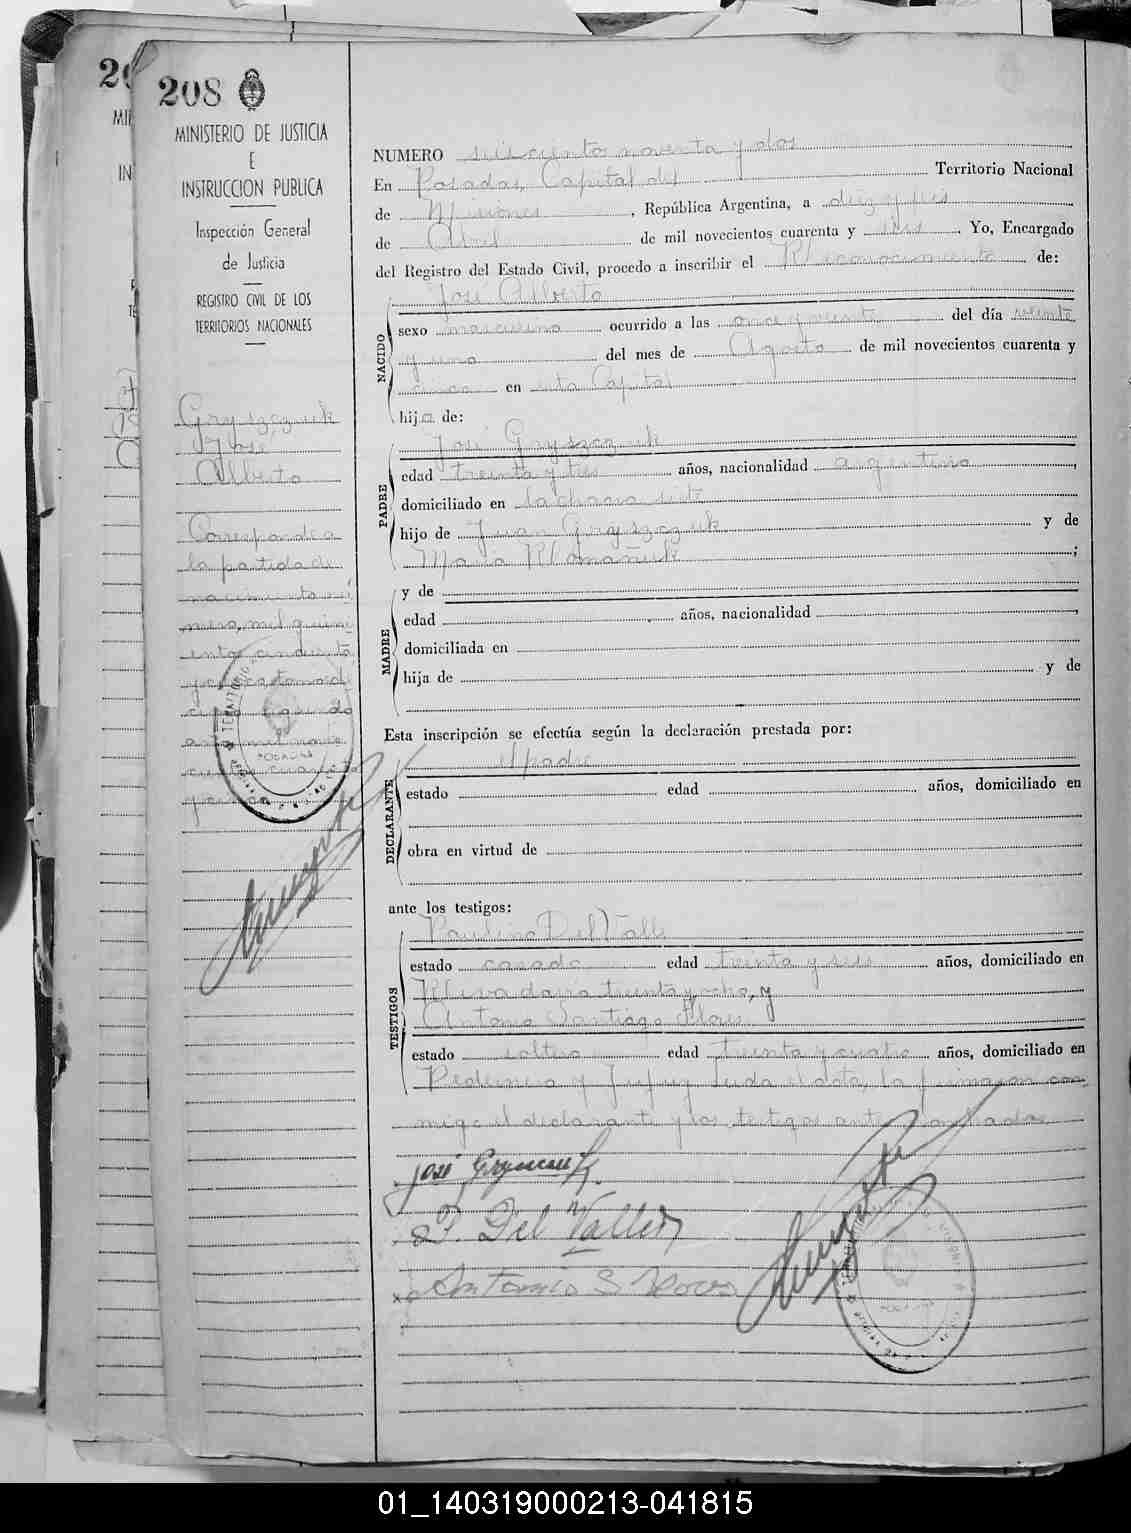 208
MINISTERIO DE JUSTICIA
E
INSTRUCCION PUBLICA
Inspección General
de Justicia
REGISTRO CIVIL DE LOS
TERRITORIOS NACIONALES
Gryszczuk
José
Alberto
Corresponde a
la partida de
nacimiento nú
mero, mil quini
entos cincuenta
NUMERO seiscientos noventa y dos
En Posadas, Capital del Territorio Nacional
de Misiones, República Argentina, a diez y seis
de Abril de mil novecientos cuarenta y seis. Yo, Encargado
del Registro del Estado Civil, procedo a inscribir el Reconocimiento de:
NACIDO
José Alberto
sexo masculino ocurrido a las once y veinte del día veinte
y uno del mes de Agosto de mil novecientos cuarenta y
cinco en esta Capital
hijo de:
PADRE
José Gryszczuk
edad treinta y tres años, nacionalidad argentino,
domiciliado en la chacra siete
hijo de Juan Gryszczuk y de
Maria Romañuk;
MADRE
y de
edad años, nacionalidad
domiciliada en
hija de y de
Esta inscripción se efectúa según la declaración prestada por:
DECLARANTE
el padre
estado edad años, domiciliado en
obra en virtud de
ante los testigos:
TESTIGOS
Paulino Del Valle
estado casado edad treinta y seis años, domiciliado en
Rivadavia treinta y ocho, y
Antonio Santiago
estado soltero edad treinta y cuatro años, domiciliado en
Pedernera y Jujuy Leida el acta, la firmaron con
migo el declarante y los testigos ante
José
P. Del Valle
Antonio S
01_140319000213-041815